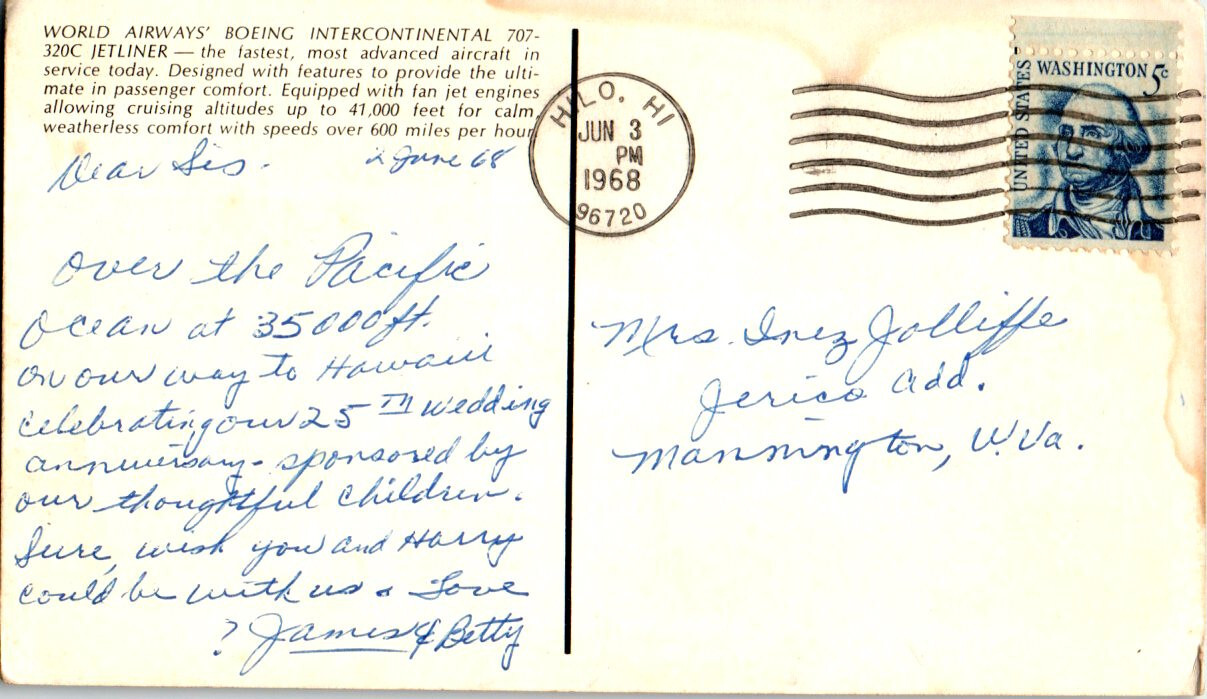 WORLD AIRWAYS' BOEING INTERCONTINENTAL 707-
320C JETLINER — the fastest, most advanced aircraft in
service today. Designed with features to provide the ulti-
mate in passenger comfort. Equipped with fan jet engines
allowing cruising altitudes up to 41,000 feet for calm,
weatherless comfort with speeds over 600 miles per hour.
Dear Sis. 2 June 68
Over the Pacific
Ocean at 35000 ft.
on our way to Hawaii
celebrating our 25TH wedding
anniversary - sponsored by
our thoughtful children.
Sure, wish you and Harry
could be with us. Love
? James & Betty
HILO, HI
JUN 3
PM
1968
96720
UNITED STATES
WASHINGTON 5c
Mrs. Inez Jolliffe
Jerico Add.
Mannington, W. Va.